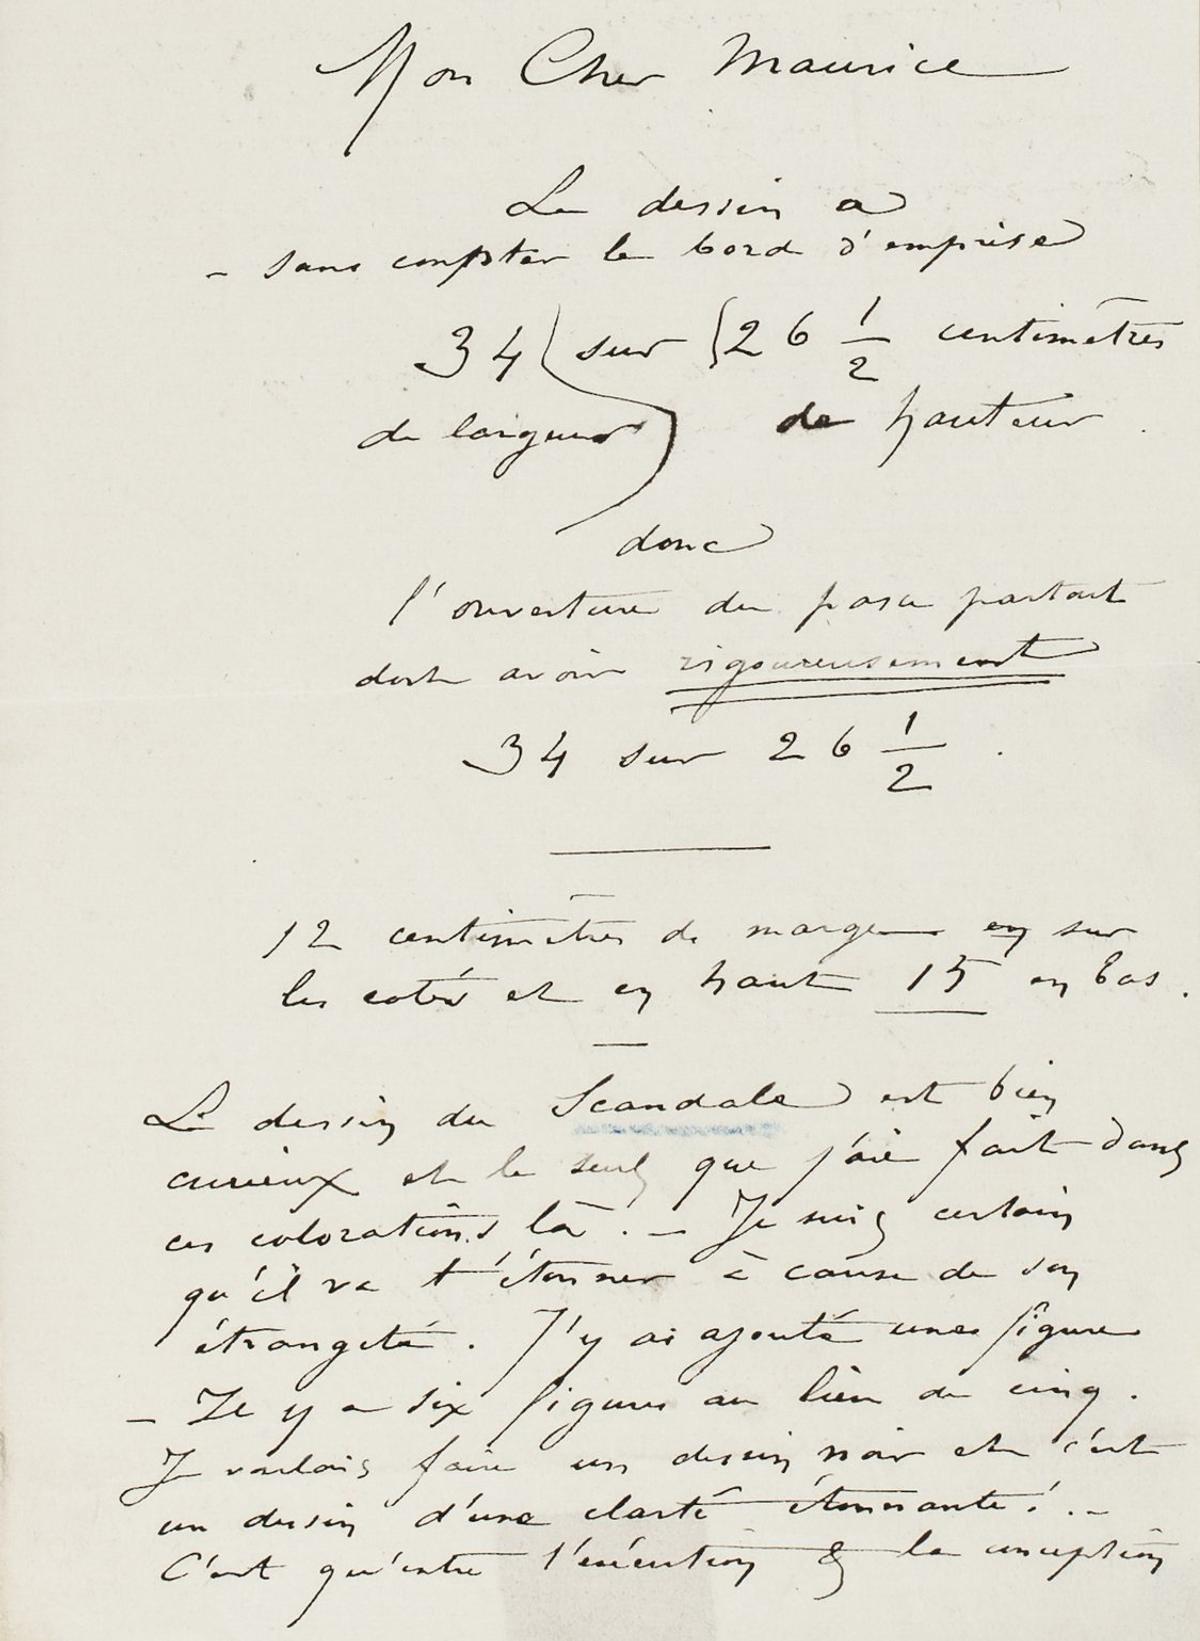 Mon Cher Maurice
Le dessin a
- sans compter le bord d'emprise
34 sur 26 1/2 centimètres
de largeur de hauteur
donc
l'ouverture du passe partout
doit avoir rigoureusement
34 sur 26 1/2.
12 centimètres de marge en sur
les cotés et en haut 15 en bas.
Le dessin du Scandale est bien
curieux et le seul que j'aie fait dans
ces colorations là. - Je suis certain
qu'il va t'étonner à cause de son
étrangeté. J'y ai ajouté une figure
- Il y a six figures au lieu de cinq.
Je voulais faire un dessin noir et c'est
un dessin d'une clarté étonnante! -
C'est qu'entre l'exécution & la conception